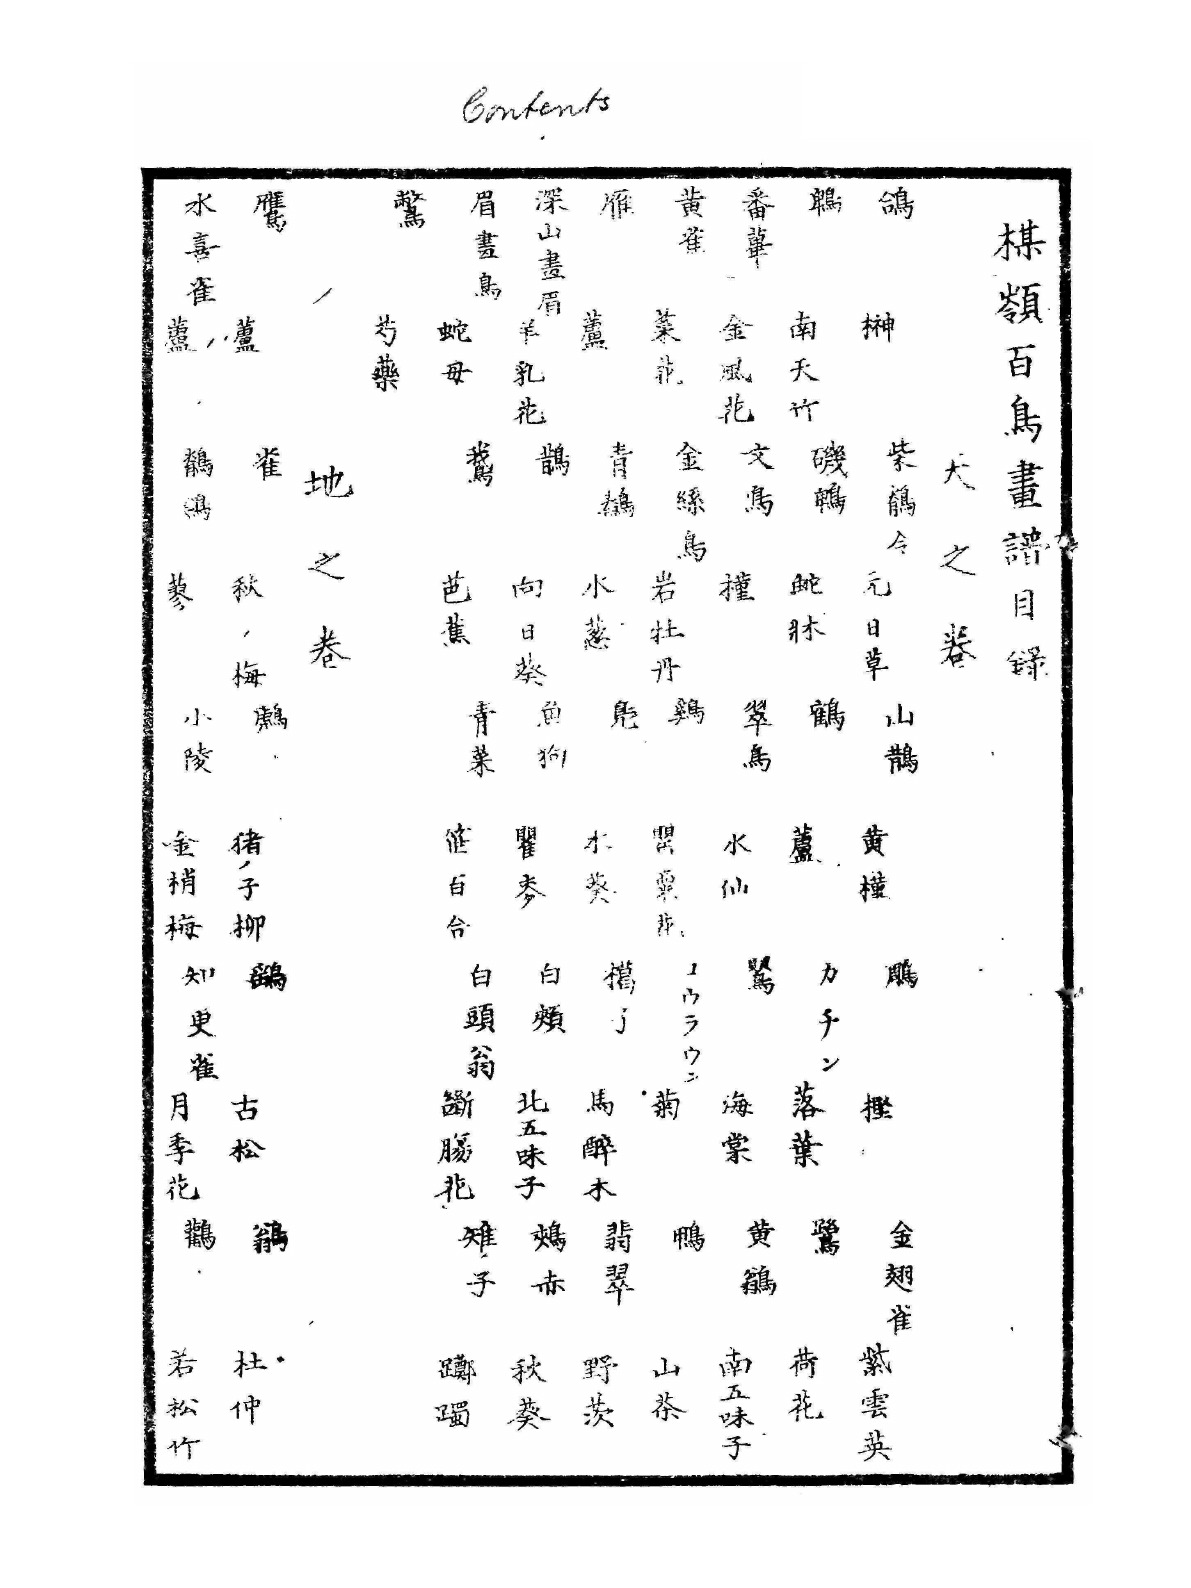 Contents
楳嶺百鳥畫譜目録
天之巻
鴿 榊 柴鶺令 元日草 山鵲 黄橦 鵰 樫 金翅雀 紫雲英
鵯 南天竹 磯鵯 蛇牀 鶴 蘆 カチン 落葉 鷺 荷花
番華 金風花 文鳥 橦 翠鳥 水仙 鷽 海棠 黄鶲 南五味子
黄雀 菜花 金絲鳥 岩牡丹 鷄 罌粟花 ユウラウン 菊 鴨 山茶
雁 蘆 青鷸 水葱 鳬 水葵 馬醉木 翡翠 野茨
深山畫眉 羊乳花 鵲 向日葵 魚狗 瞿麥 白頰 北五味子 鴂赤 秋葵
眉畫鳥 蛇母 鵞 芭蕉 青菜 百合 白頭翁 斷腸花 雉子 躑躅
芍藥
地之巻
蘆 雀 秋ノ梅 猪ノ子柳 古松 鶲 杜仲
水喜雀 蘆 蓼 小陵 金梢梅 知更雀 月季花 鸛 若松竹